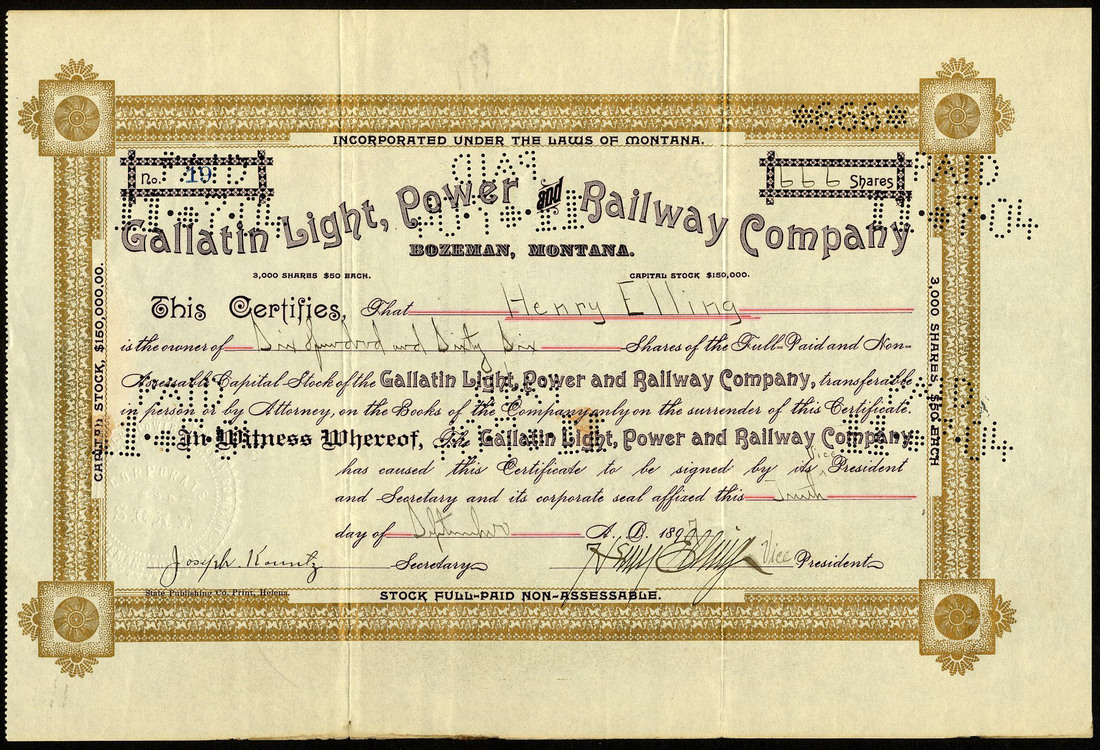 *666*
INCORPORATED UNDER THE LAWS OF MONTANA.
No. 19
666 Shares
PAID
Gallatin Light, Power and Railway Company
BOZEMAN, MONTANA.
3,000 SHARES $50 EACH. CAPITAL STOCK $150,000.
This Certifies, That Henry Elling
is the owner of Six Hundred and Sixty Six Shares of the Full-Paid and Non-
Assessable Capital Stock of the Gallatin Light, Power and Railway Company, transferable
in person or by Attorney, on the Books of the Company only on the surrender of this Certificate.
In Witness Whereof, The Gallatin Light, Power and Railway Company
has caused this Certificate to be signed by its Vice President
and Secretary and its corporate seal affixed this Tenth
day of September A. D. 1897
Joseph Kountz Secretary Henry Elling Vice President
State Publishing Co. Print, Helena.
STOCK FULL-PAID NON-ASSESSABLE.
CAPITAL STOCK, $150,000.00.
3,000 SHARES, $50 EACH
PAID
PAID
PAID